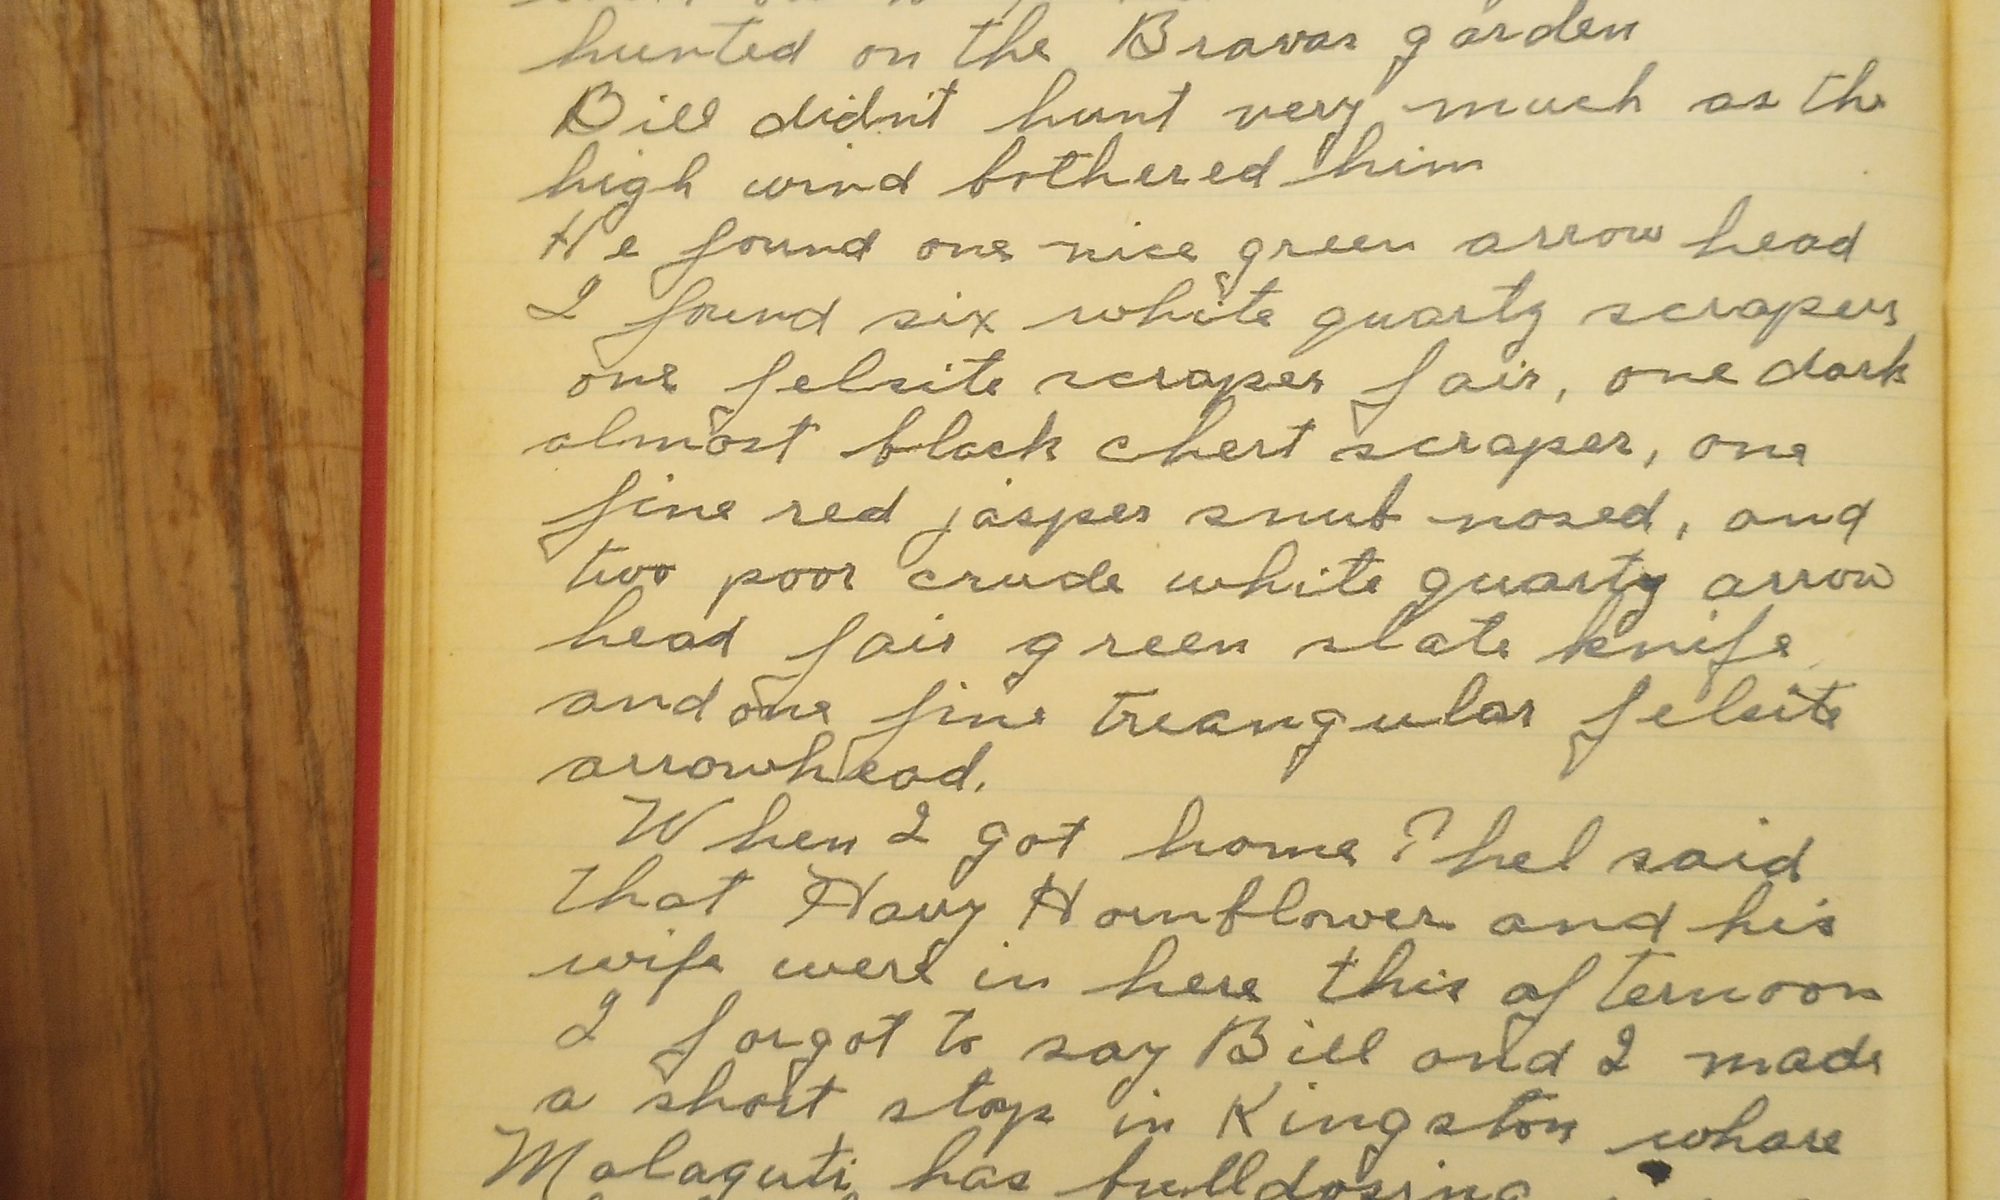 hunted on the Bravas garden
Bill didn't hunt very much as the
high wind bothered him
He found one nice green arrow head
I found six white quartz scrapers
one felsite scraper fair, one dark
almost black chert scraper, one
fine red jasper snub nosed, and
two poor crude white quartz arrow
head fair green slate knife
and one fine treangular felsite
arrowhead.
When I got home Thel said
that Havy Hornblower and his
wife were in here this afternoon
I forgot to say Bill and I made
a short stop in Kingston whare
Malaguti has bulldosing